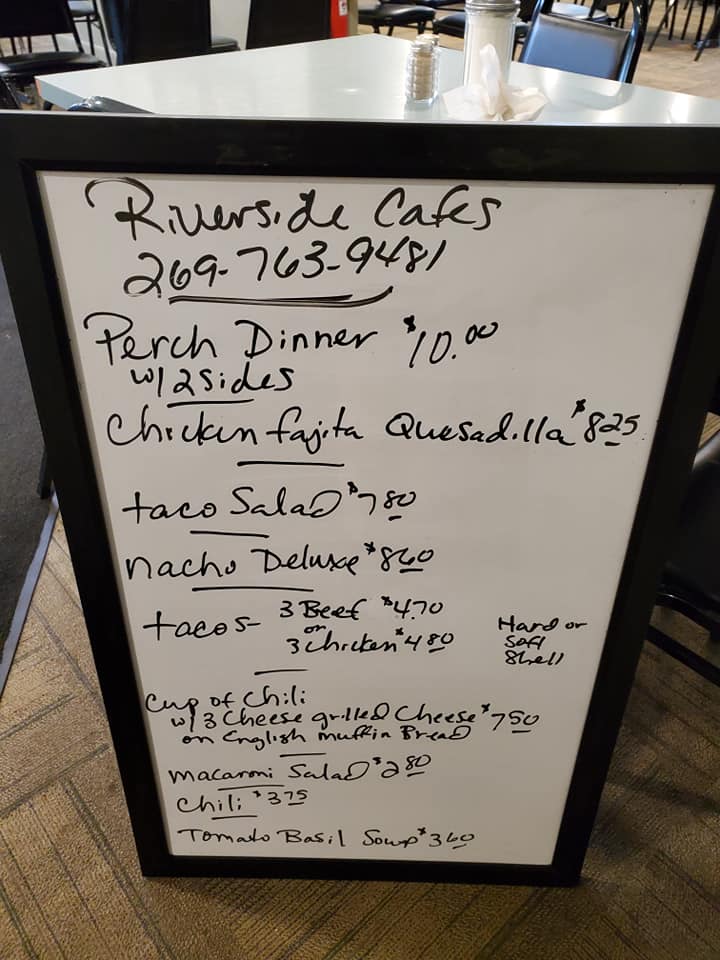 Riverside Cafes
269-763-9481
Perch Dinner $10.00
w/ 2 Sides
Chicken fajita Quesadilla $8.25
taco Salad $7.80
nacho Deluxe $8.60
tacos - 3 Beef $4.70
or
3 chicken $4.80
Hard or
Soft
Shell
Cup of Chili
w/ 3 Cheese grilled Cheese $7.50
on English muffin Bread
macaroni Salad $2.80
Chili $3.75
Tomato Basil Soup $3.60